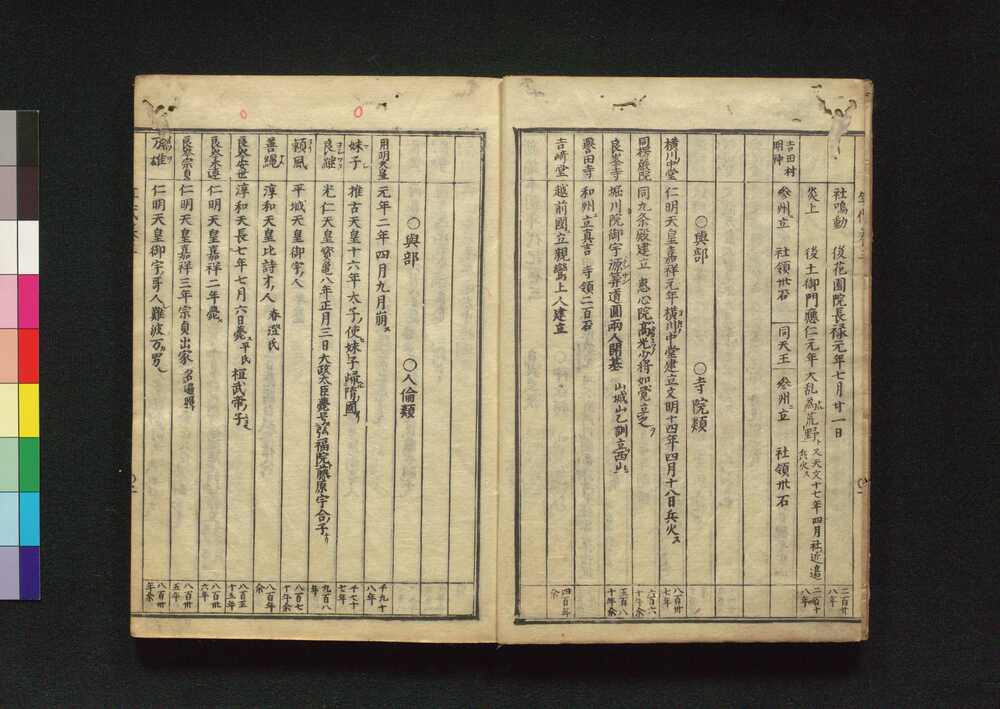 社鳴動 後花園院長禄元年七月廿一日 二百卅八年
炎上 後土御門應仁元年大乱為荒野 又天文十七年四月社近邉兵火ス 二百廿八年
吉田村明神 参州立 社領卅石 同天王 参州立 社領卅石
○與部 ○寺院類
横川中堂 仁明天皇嘉祥元年横川中堂建立文明十四年四月十八日兵火ス 八百卅七年
同楞厳院 同九条殿建立 恵心院高光少将如覚立之 六百六十年余
良峯寺 堀川院御宇源算道圓兩人開基 山城山乙訓立西山 五百八十年余
譽田寺 和州立真言 寺領二百石
吉崎堂 越前國立親鸞上人建立 四百年余
○與部 ○人倫類
用明天皇 元年二年四月九月崩ス 千九十八年
妹子 推古天皇十六年太子ノ使妹子帰隋國 千七十七年
良継 光仁天皇寳亀八年正月三日大政大臣薨号弘福院藤原宇合ノ子 九百八年
頼風 平城天皇御宇ノ人 八百七十年余
善縄 淳和天皇比詩才ノ人 春澄氏 八百年余
良岑安世 淳和天長七年七月六日薨ス平氏桓武帝ノ子 八百五十五年
良岑木連 仁明天皇嘉祥二年薨 八百卅六年
良岑宗貞 仁明天皇嘉祥三年宗貞出家 名遍照 八百卅五年
万雄 仁明天皇御宇哥人難波万男 八百卅年余